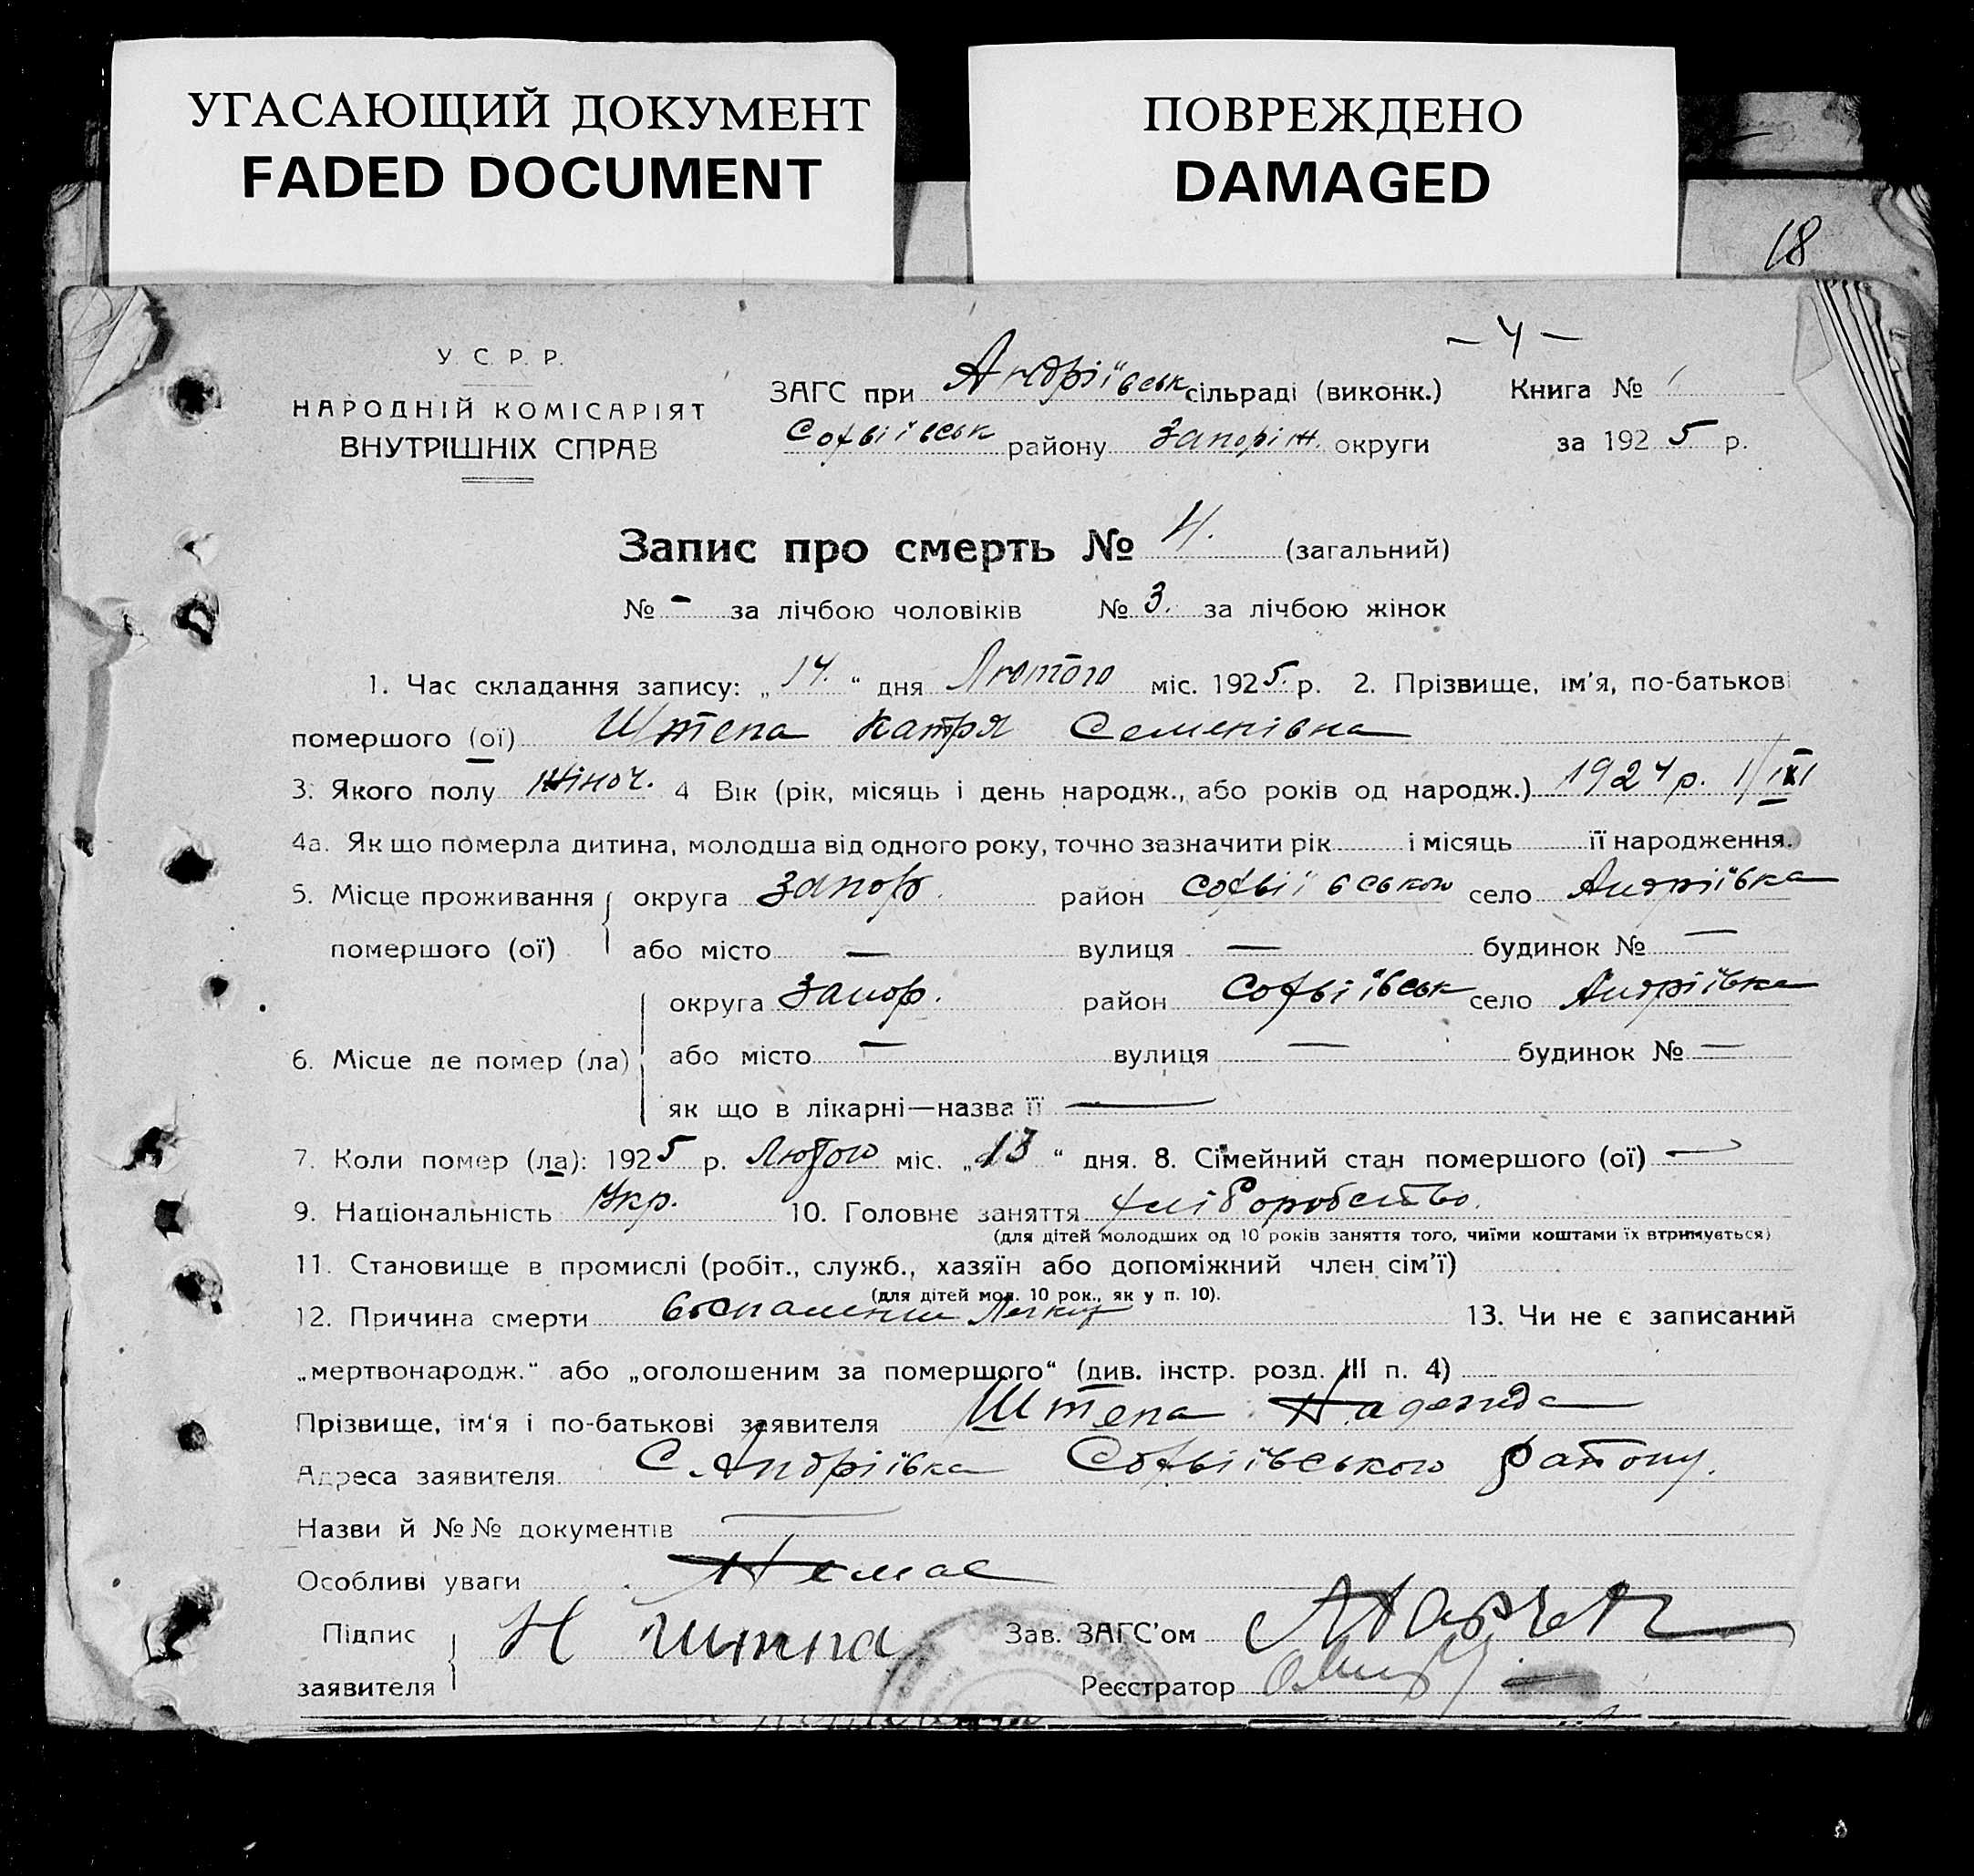 УГАСАЮЩИЙ ДОКУМЕНТ
FADED DOCUMENT
ПОВРЕЖДЕНО
DAMAGED
18
– 4 –
У. С. Р. Р.
НАРОДНІЙ КОМІСАРІЯТ
ВНУТРІШНІХ СПРАВ
ЗАГС при Андріївськ сільраді (виконк.) Книга № 1
Софіївськ району Запоріж. округи за 1925 р.
Запис про смерть № 4. (загальний)
№ - за лічбою чоловіків № 3. за лічбою жінок
1. Час складання запису: „14.“ дня Лютого міс. 1925. р. 2. Прізвище, ім'я, по-батькові
помершого (ої) Штепа Катря Семенівна
3. Якого полу жіноч. 4 Вік (рік, місяць і день народж., або років од народж.) 1924 р.
4а. Як що померла дитина, молодша від одного року, точно зазначити рік і місяць її народження.
5. Місце проживання округа Запор. район Софіївського село Андріївка
помершого (ої) або місто — вулиця — будинок № —
округа Запор. район Софіївськ село Андріївка
6. Місце де помер (ла) або місто — вулиця — будинок № —
як що в лікарні—назва її —
7. Коли помер (ла): 1925 р. Лютого міс. „13“ дня. 8. Сімейний стан помершого (ої) —
9. Національність Укр. 10. Головне заняття хліборобство.
(для дітей молодших од 10 років заняття того, чиїми коштами їх втримується)
11. Становище в промислі (робіт., служб., хазяїн або допоміжний член сім'ї)
(для дітей мол. 10 рок., як у п. 10).
12. Причина смерти воспаление Легких 13. Чи не є записаний
„мертвонародж.“ або „оголошеним за помершого“ (див. інстр. розд. III п. 4)
Прізвище, ім'я і по-батькові заявителя Штепа Надежда
Адреса заявителя С. Андріївка Софіївського району.
Назви й №№ документів —
Особливі уваги Немає
Підпис Н Штпа Зав. ЗАГС'ом
заявителя Реєстратор